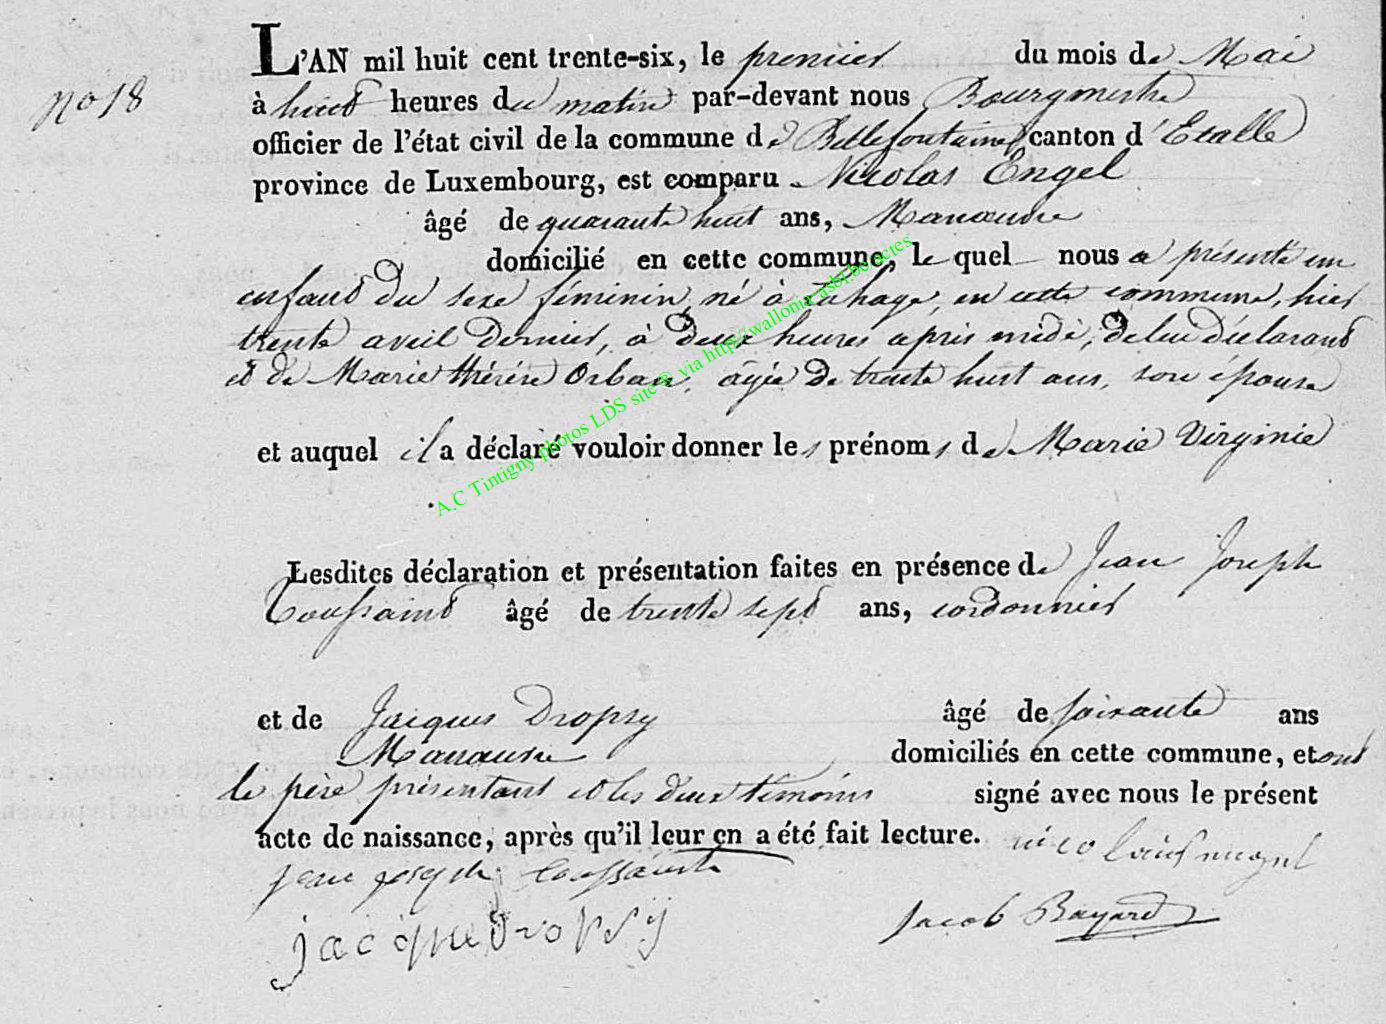 L'AN mil huit cent trente-six, le premier du mois de Mai
no 18
à huit heures du matin par-devant nous Bourgmestre
officier de l'état civil de la commune de Bellefontaine canton d'Etalle
province de Luxembourg, est comparu Nicolas Engel
âgé de quarante huit ans, Manœuvre
domicilié en cette commune, le quel nous a présenté un
enfant du sexe féminin, né à Lahage, en cette commune, hier
trente avril dernier, à deux heures après midi, de lui déclarant
et de Marie thérése Orban, âgée de trente huit ans, son épouse
et auquel il a déclaré vouloir donner les prénoms de Marie Virginie
A.C Tintigny photos LDS site® via http://wallonia-asbl.be actes
Lesdites déclaration et présentation faites en présence de Jean Joseph
Toussaint âgé de trente sept ans, cordonnier
et de Jacques Dropsy âgé de soixante ans
Manœuvre domiciliés en cette commune, et ont
le père présentant et les deux témoins signé avec nous le présent
acte de naissance, après qu'il leur en a été fait lecture.
jean joseph toussainte
jacque dropsy
Jacob Bayard